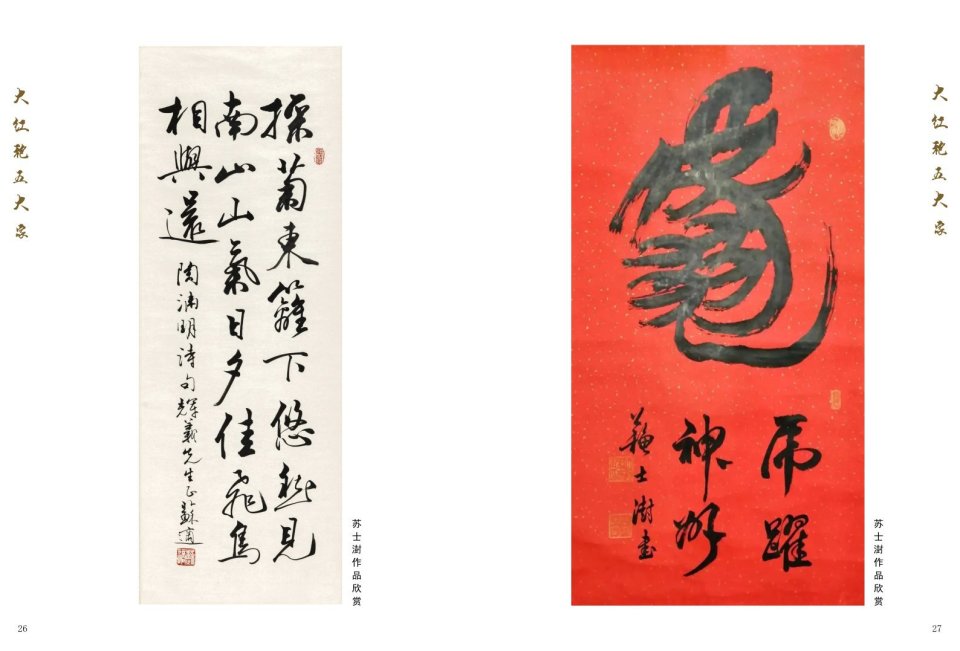 大红袍五大家
採菊東籬下悠然見
南山山氣日夕佳飛鳥
相與還
陶淵明詩句輝義先生正蘇適
苏士澍作品欣赏
26
大红袍五大家
虎躍
神州
蘇士澍書
苏士澍作品欣赏
27